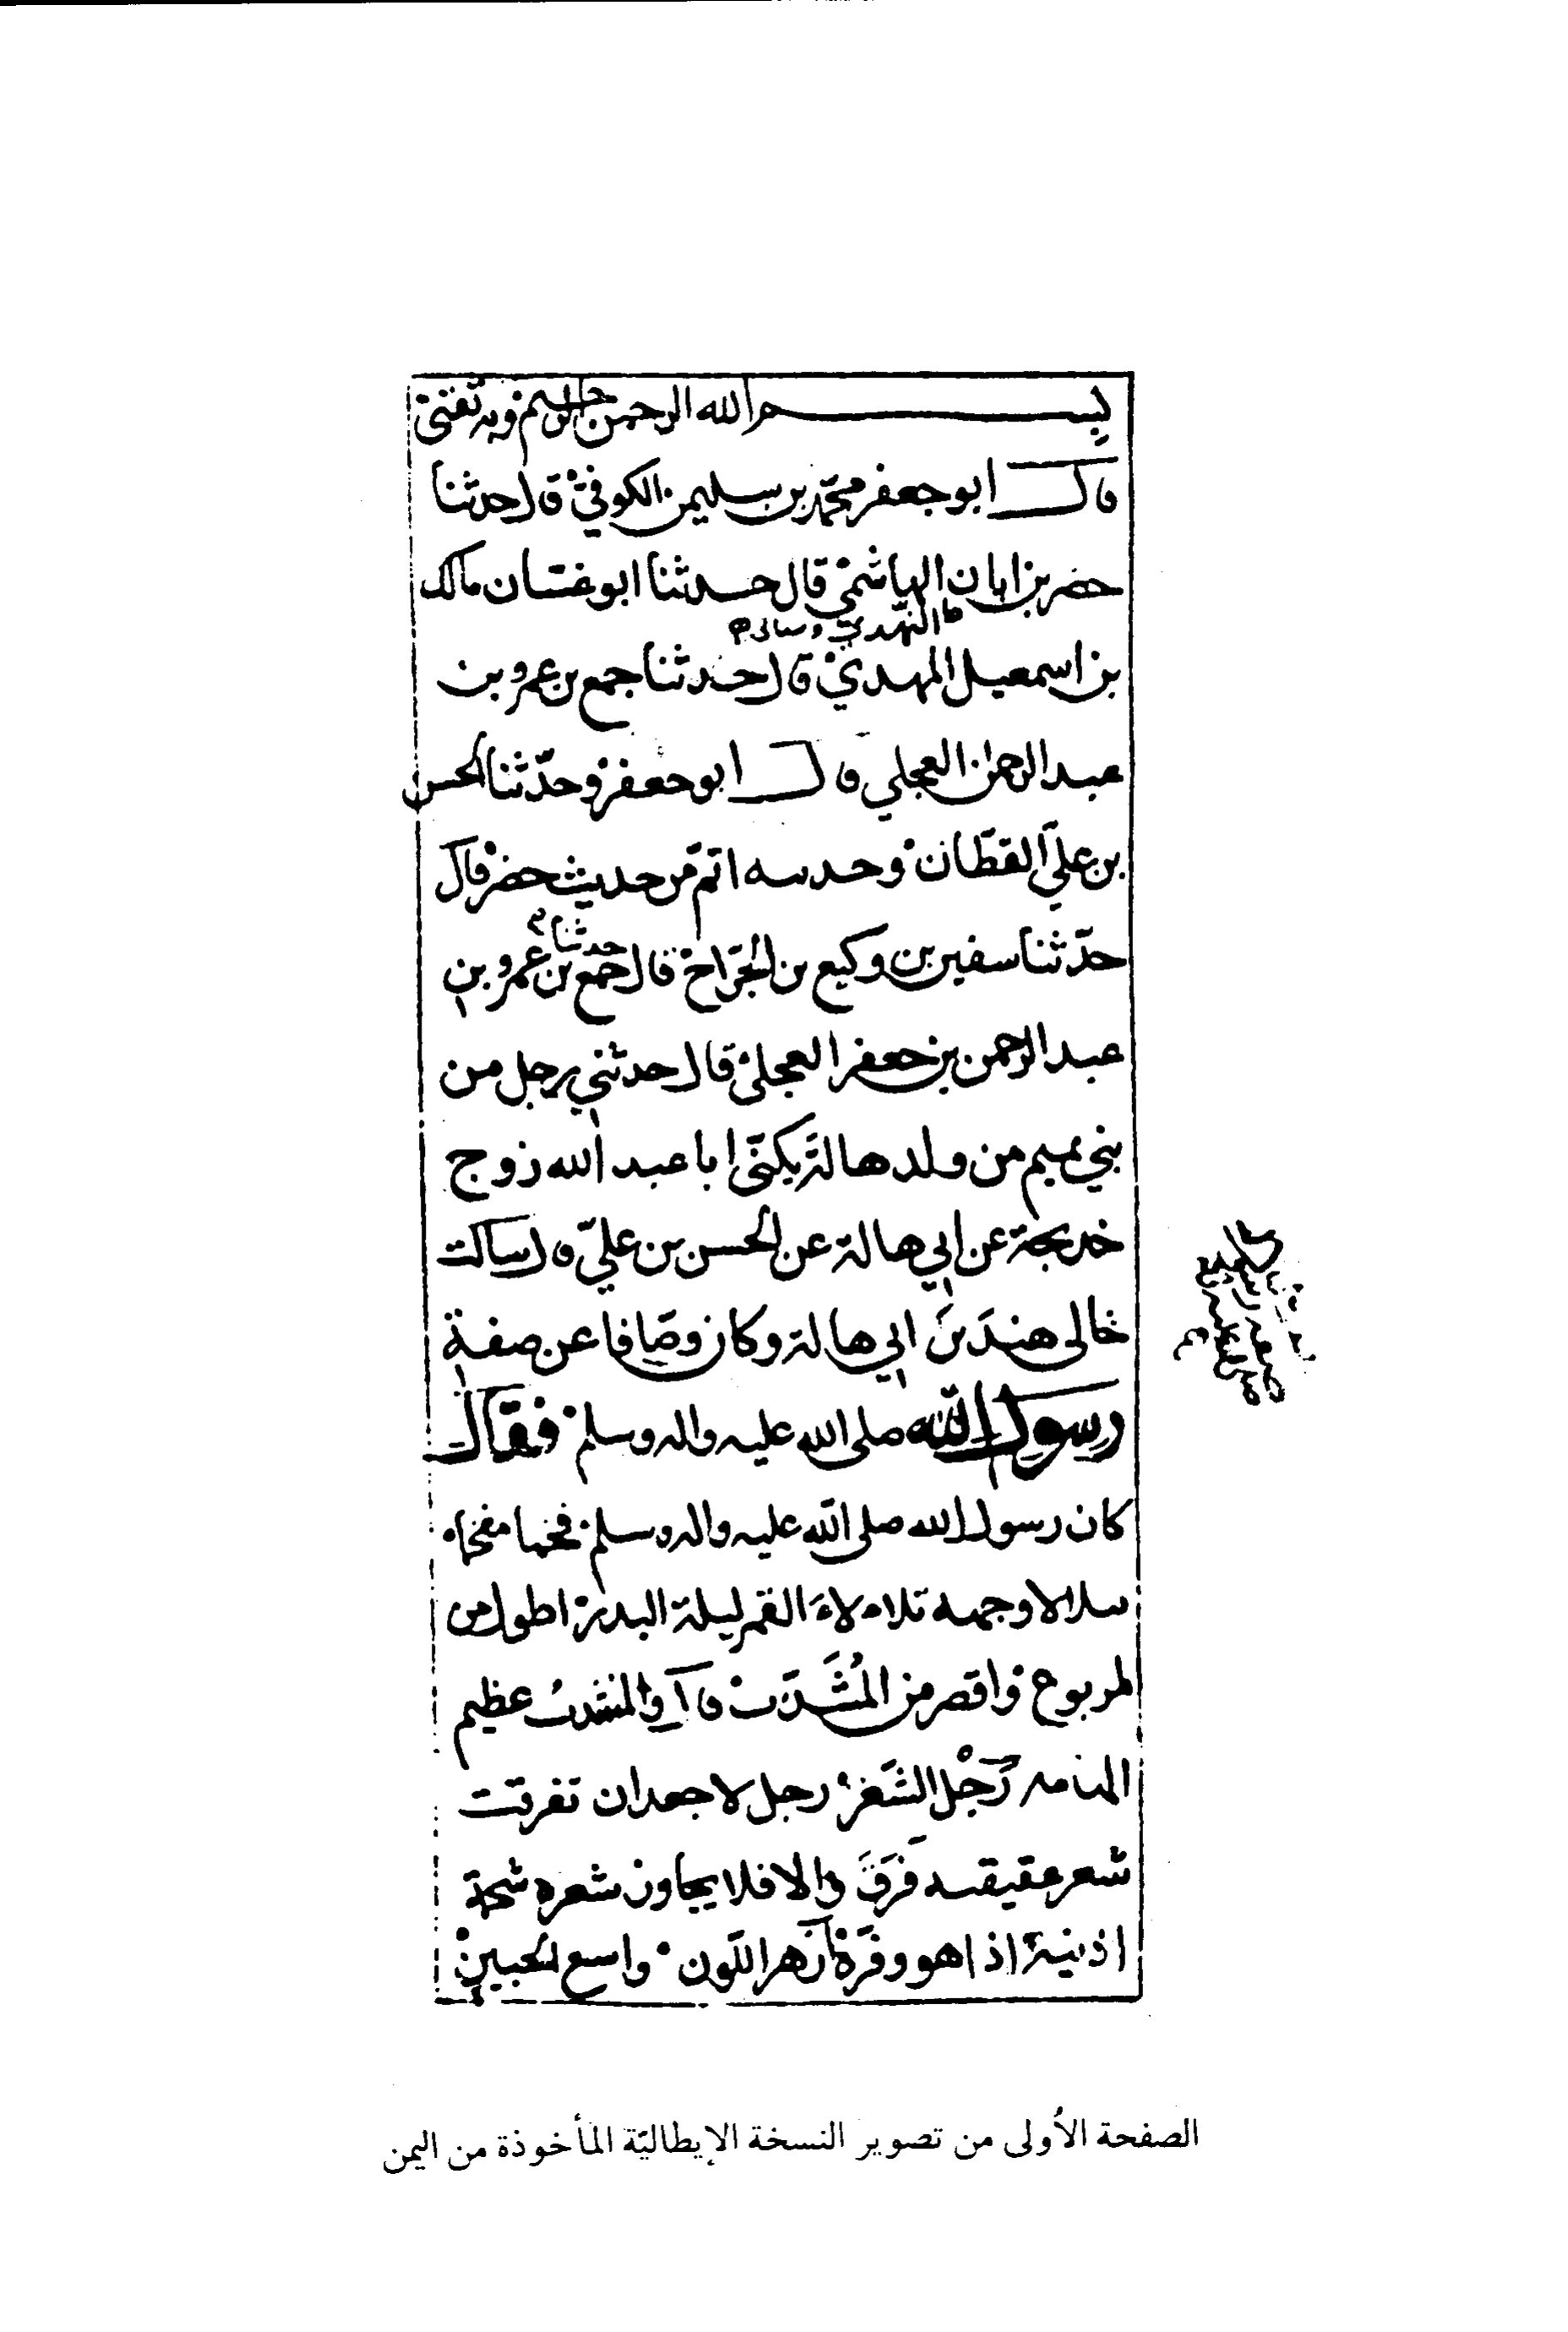 بسم الله الرحمن الرحيم وبه ثقتي
قال ابو جعفر محمد بن سليمن الكوفي قال حدثنا
خضر بن ابان الهاشمي قال حدثنا ابو غسان مالك
النهدي
بن اسمعيل المهدي قال حدثنا جميع بن عمرو بن
عبد الرحمن العجلي قال ابو جعفر وحدّثنا الحسن
بن علي القطّان وحديثه اتمّ من حديث خضر قال
حدثنا
حدّثنا سفين بن وكيع بن الجرّاح قال جميع بن عمرو بن
عبد الرحمن بن جعفر العجلي قال حدثني رجل من
بني تميم من ولد هالة يكنّى ابا عبد الله زوج
خديجة عن ابي هالة عن الحسن بن عليّ قال سالت
خالي هندَ بنَ ابي هالة وكان وصّافا عن صفة
رسول الله صلى الله عليه واله وسلم فقال
كان رسول الله صلى الله عليه واله وسلم فخما مفخما
يتلالا وجهه تلالاءَ القمر ليلة البدر اطول من
المربوع واقصر من المُشَذَّب قال والمشذب عظيم
الهامه رَجْل الشَعر رجل لا جعد ان تفرقت
شعر عقيقته فَرَقَ والا فلا يجاوز شعره شحمة
اذنيه اذا هو وفّرة ازهر اللّون واسع الجبين
الصفحة الأولى من تصوير النسخة الإيطاليّة المأخوذة من اليمن